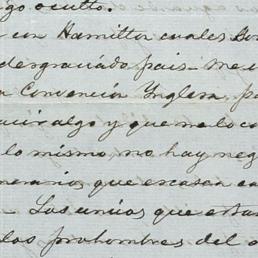 go oculto.
con Hamilton cuales son
desgraciado pais. me
a Convención Ynglesa, p
ucir algo y que me lo co
lo mismo, no hay neg
merario, que escasea ca
. Los únicos que estan
los prohombres del